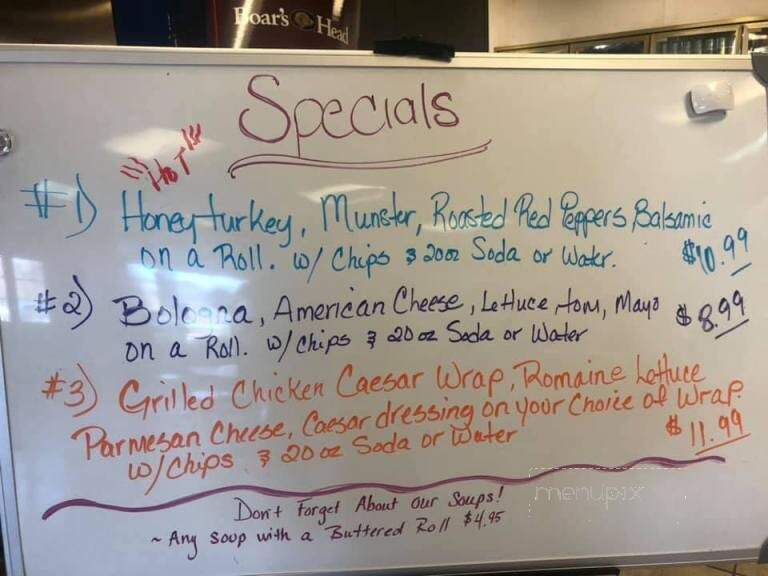 Boar's Head
Specials
HOT
#1) Honey turkey, Munster, Roasted Red Peppers, Balsamic
on a Roll. w/ Chips & 20oz Soda or Water. $10.99
#2) Bologna, American Cheese, Lettuce, tom, Mayo $8.99
on a Roll. w/ chips & 20 oz Soda or Water
#3) Grilled Chicken Caesar Wrap, Romaine Lettuce
Parmesan Cheese, Caesar dressing on your Choice of Wrap.
w/ Chips & 20 oz Soda or Water $11.99
Don't Forget About our Soups!
~ Any soup with a Buttered Roll $4.95
menupix